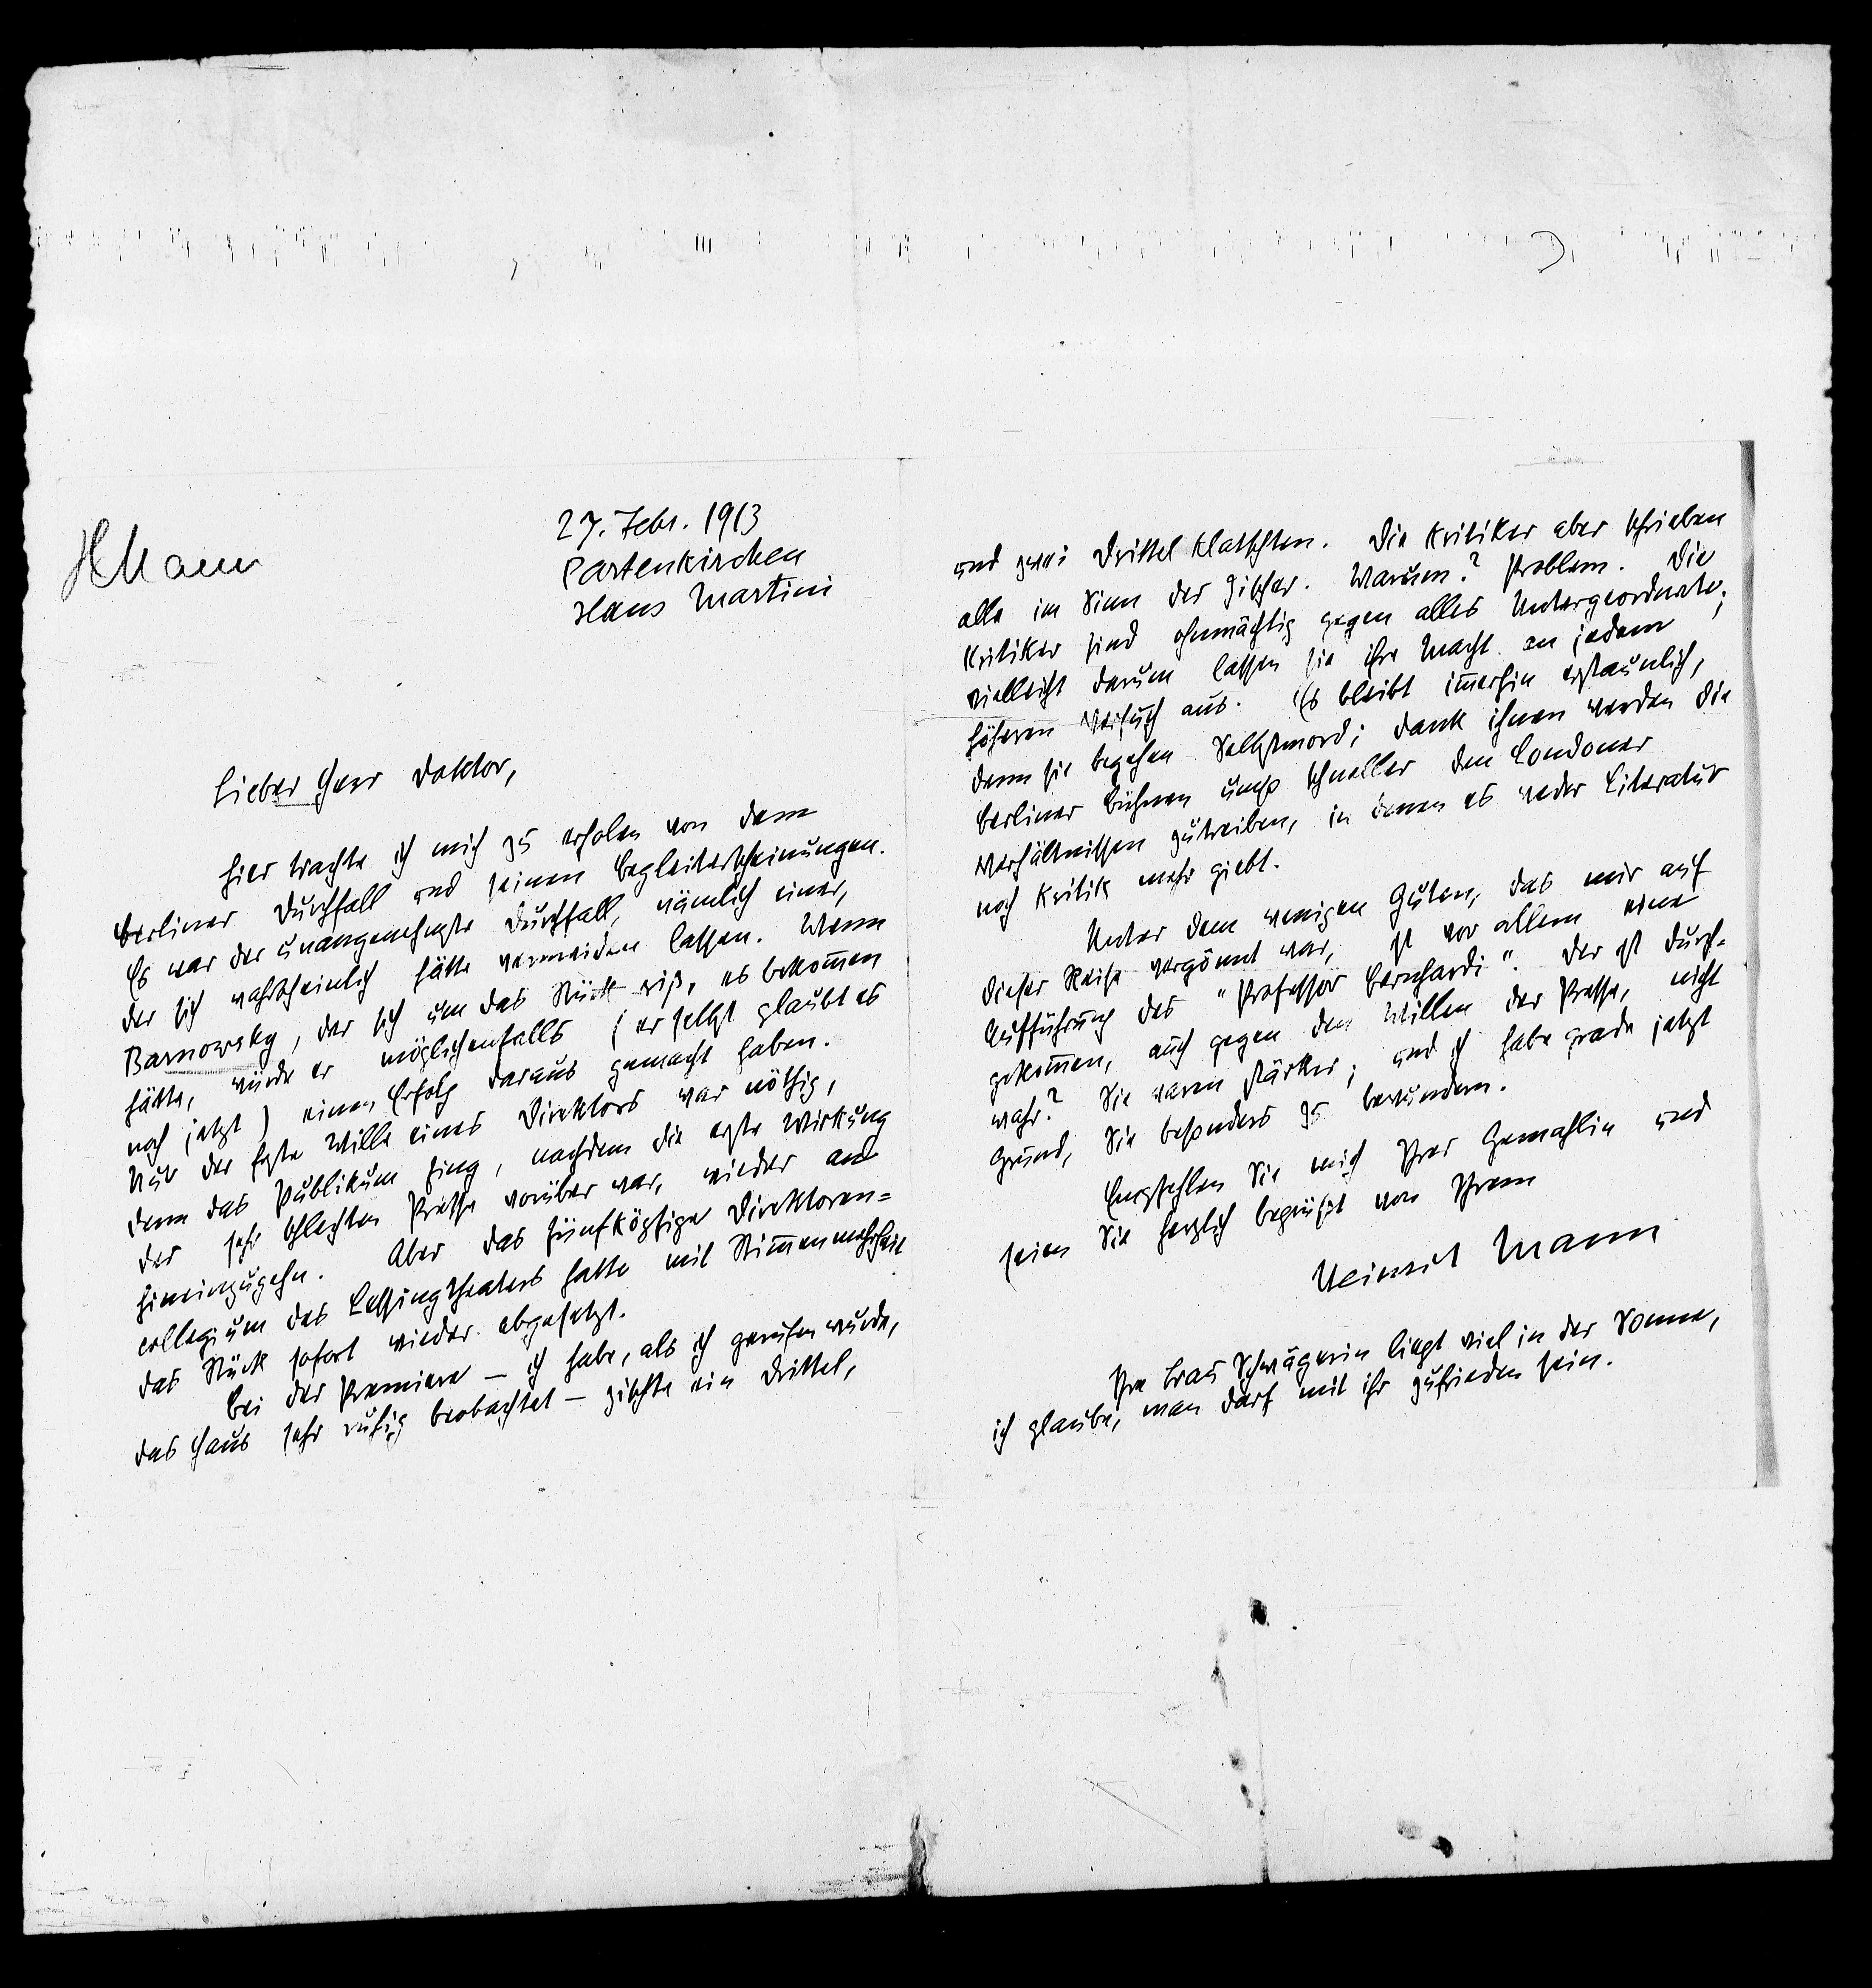 HMann
27. Febr. 1913
Partenkirchen
Haus Martini
Lieber Herr Doktor,
hier trachte ich mich zu erholen von dem
Berliner Durchfall und seinen Begleiterscheinungen.
Es war der unangenehmste Durchfall, nämlich einer,
der sich wahrscheinlich hätte vermeiden lassen. Wenn
Barnowsky, der sich um das Stück riß, es bekom̅en
hätte, würde er möglichenfalls (er selbst glaubt es
noch jetzt) einen Erfolg daraus gemacht haben.
Nur der feste Wille eines Direktors war nöthig,
denn das Publikum fing, nachdem die erste Wirkung
der sehr schlechten Presse vorüber war, wieder an
hineinzugehn. Aber das fünfköpfige Direktoren-
collegium des Lessingtheaters hatte mit Stim̅enmehrheit
das Stück sofort wieder abgesetzt.
Bei der Premiere – ich habe, als ich gerufen wurde,
das Haus sehr ruhig beobachtet – zischte ein Drittel,
und zwei Drittel klatschten. Die Kritiker aber schrieben
alle im Sinn der Zischer. Warum? Problem. Die
Kritiker sind ohnmächtig gegen alles Untergeordnete;
vielleicht darum lassen sie ihre Macht an jedem
höheren Versuch aus. Es bleibt im̅erhin erstaunlich,
denn sie begehen Selbstmord; dank ihnen werden die
Berliner Bühnen umso schneller den Londoner
Verhältnissen zutreiben, in denen es weder Literatur
noch Kritik mehr giebt.
Unter dem wenigen Guten, das mir auf
dieser Reise vergönnt war, ist vor allem eine
Aufführung des "Professor Bernhardi". Der ist durch-
gekom̅en, auch gegen den Willen der Presse, nicht
wahr? Sie waren stärker; und ich habe grade jetzt
Grund, Sie besonders zu bewundern.
Empfehlen Sie mich Ihrer Gemahlin und
seien Sie herzlich begrüßt von Ihrem
Heinrich Mann
Ihre Frau Schwägerin liegt viel in der Sonne,
ich glaube, man darf mit ihr zufrieden sein.